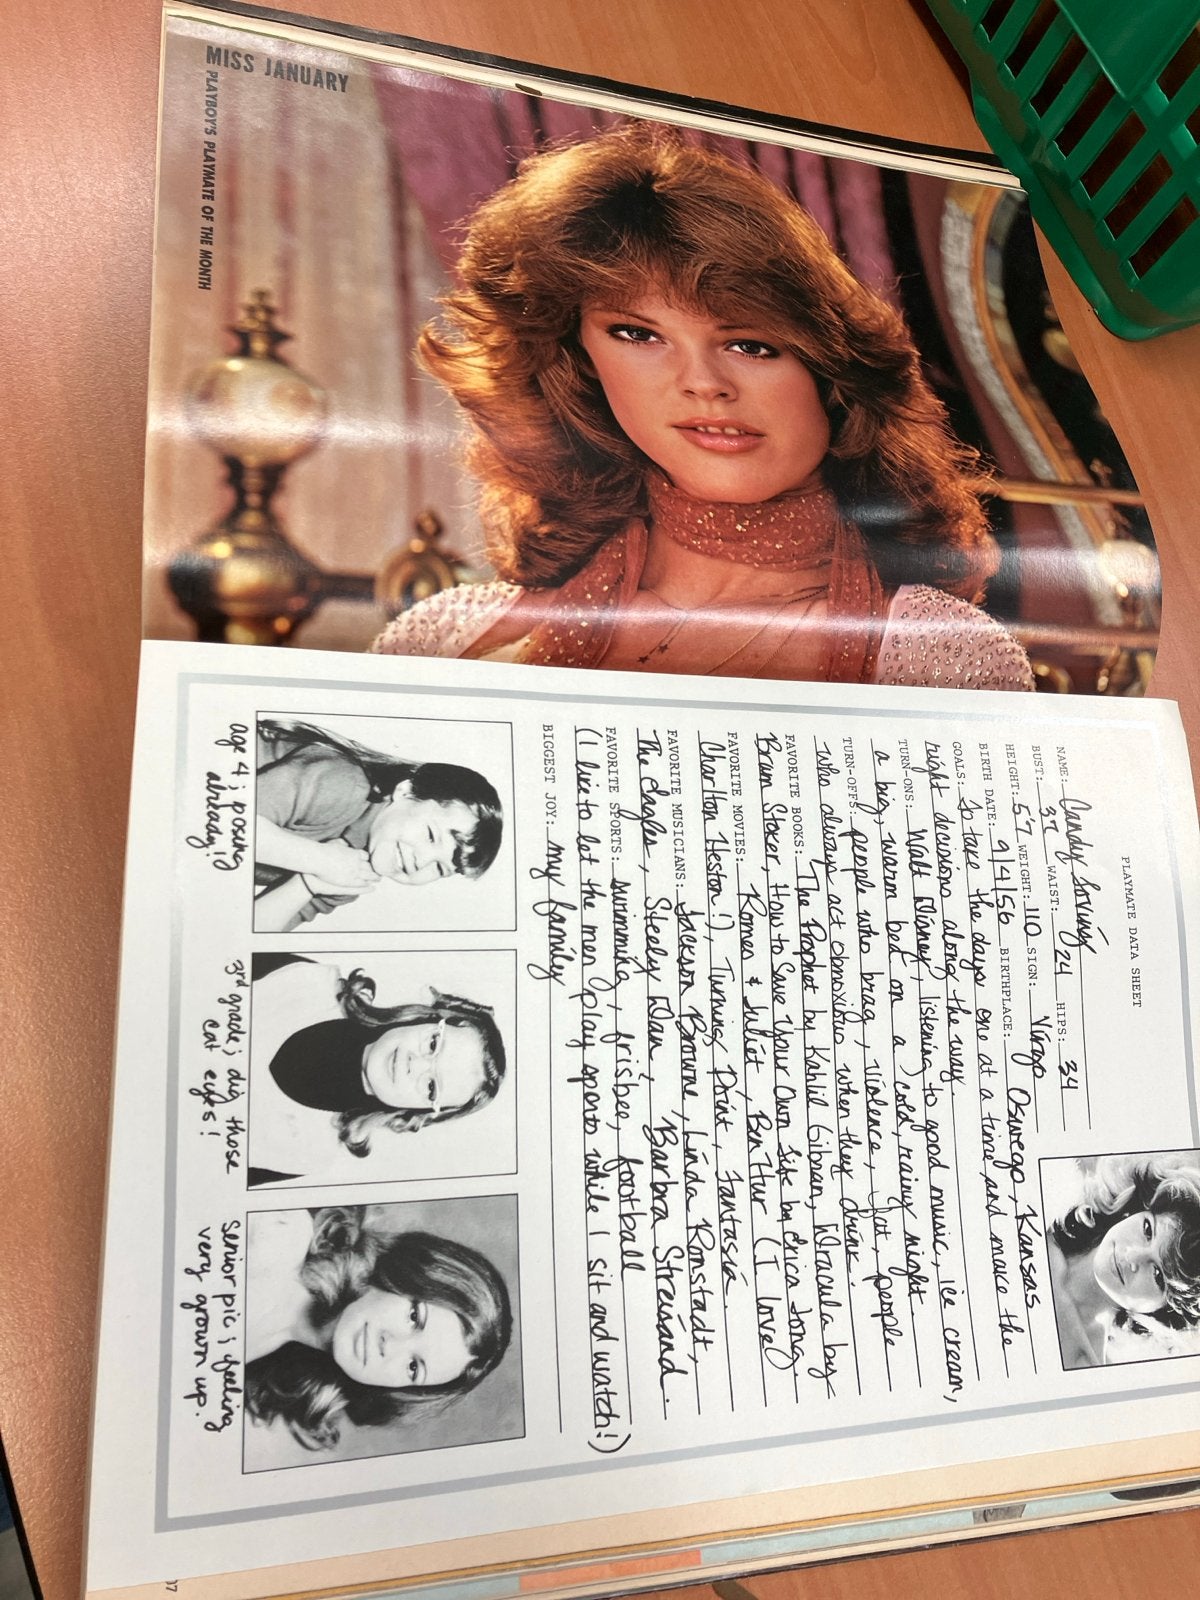 MISS JANUARY
PLAYBOY'S PLAYMATE OF THE MONTH
PLAYMATE DATA SHEET
NAME: Candy Loving
BUST: 37 WAIST: 24 HIPS: 34
HEIGHT: 5'7 WEIGHT: 110 SIGN: Virgo
BIRTH DATE: 9/4/56 BIRTHPLACE: Oswego, Kansas
GOALS: To take the days one at a time, and make the
right decisions along the way.
TURN-ONS: Walt Disney, listening to good music, ice cream,
a big, warm bed on a cold, rainy night.
TURN-OFFS: people who brag, violence, fat, people
who always act obnoxious when they drink.
FAVORITE BOOKS: The Prophet by Kahlil Gibran, Dracula by
Bram Stoker, How to Save Your Own Life by Erica Jong.
FAVORITE MOVIES: Romeo & Juliet, Ben Hur (I love
Charlton Heston!), Turning Point, Fantasia.
FAVORITE MUSICIANS: Jackson Browne, Linda Ronstadt,
The Eagles, Steely Dan, Barbra Streisand.
FAVORITE SPORTS: swimming, frisbee, football
(I like to let the men play sports while I sit and watch!)
BIGGEST JOY: my family
age 4; posing
already!
3rd grade; dig those
cat eyes!
Senior pic; feeling
very grown up.